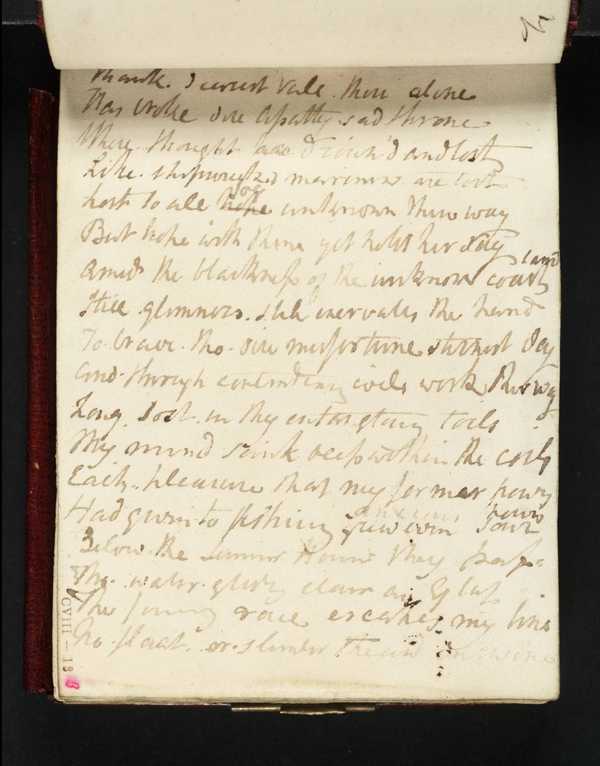 thank. Sweet Vale. thou alone
Has broke dire Apathy sad throne
Where. thought has drown'd and lost
Like. shipwrecked marriners are
host to all hope unknown their way
But hope with thine yet holds her sty
Amid the blackness of the unknown coast
Still. glimmers. still enervates the hand
To. brave. tho. dire misfortune sternest day
And. through contending evils work their way
Long. lost. in thy entangling toils
My mind sunk deep within the coils
Each. pleasure that my former powers
Had given to fishing few even sour
anxious hours
Below. the summer hours they pass
The. water. gliding clear as glass
The finny race escapes my line
No. float. or. slender thread
CVIII — 18